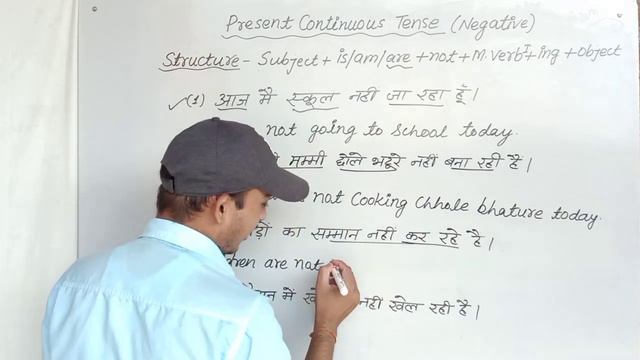 Present Continuous Tense (Negative)
Structure - Subject + is/am/are + not + M. VerbI + ing + object
(1) आज मैं स्कूल नहीं जा रहा हूँ।
not going to school today.
मम्मी छोले भटूरे नहीं बना रही है।
not Cooking Chhole bhature today.
का सम्मान नहीं कर रहे है।
are not
में नहीं खेल रही है।